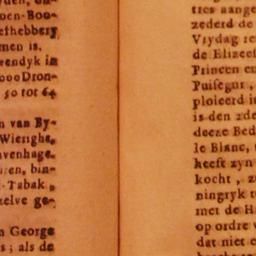 oen-Boo-
efhebbery
men is.
rendyk in
000 Dron-
50 tot 64
n van By-
Wierighe,
avenhage.
-Tabak,
zelve ge-
n George
s; als de
tres aange
zederd de
Vrydag
de
Princen en
ploieerd
is den
deeze Bed
le Blanc,
heeft zyn
kocht,
ningryk
met de H
op ordre
dat niet